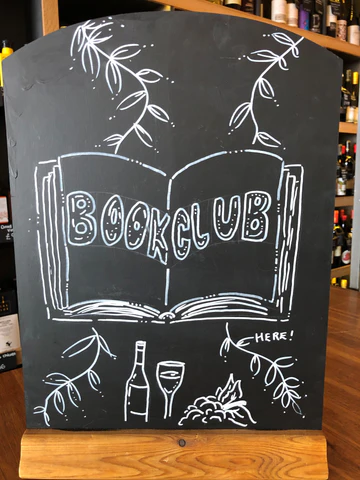 BOOKCLUB
HERE!